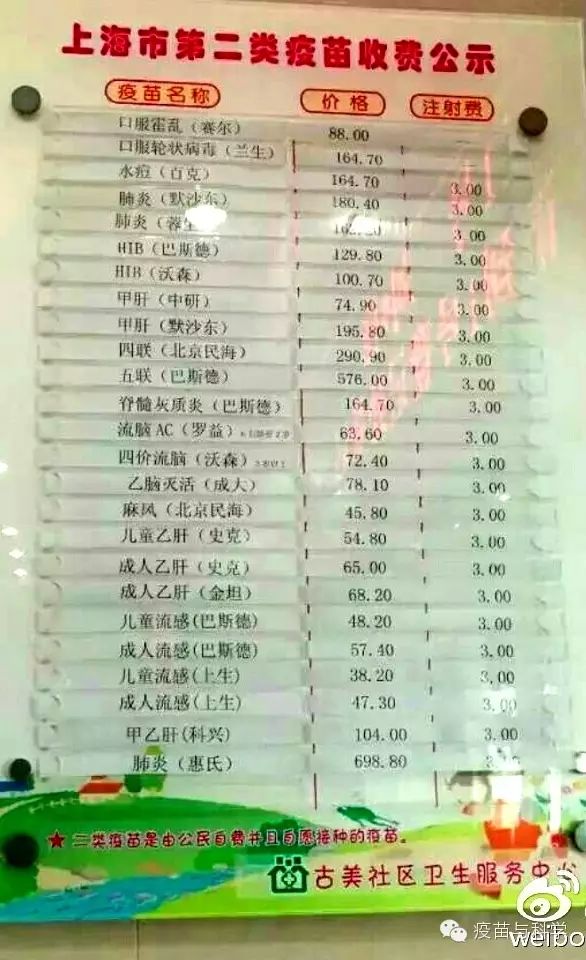 上海市第二类疫苗收费公示
疫苗名称 价格 注射费
口服霍乱（赛尔） 88.00
口服轮状病毒（兰生） 164.70
水痘（百克） 164.70 3.00
肺炎（默沙东） 180.40 3.00
肺炎（蓉生） 3.00
HIB（巴斯德） 129.80 3.00
HIB（沃森） 100.70 3.00
甲肝（中研） 74.90 3.00
甲肝（默沙东） 195.80 3.00
四联（北京民海） 290.90 3.00
五联（巴斯德） 576.00 3.00
脊髓灰质炎（巴斯德） 164.70 3.00
流脑AC（罗益） 63.60 3.00
四价流脑（沃森） 72.40 3.00
乙脑灭活（成大） 78.10 3.00
麻风（北京民海） 45.80 3.00
儿童乙肝（史克） 54.80 3.00
成人乙肝（史克） 65.00 3.00
成人乙肝（金坦） 68.20 3.00
儿童流感(巴斯德) 48.20 3.00
成人流感(巴斯德) 57.40 3.00
儿童流感(上生) 38.20 3.00
成人流感(上生) 47.30 3.00
甲乙肝(科兴) 104.00 3.00
肺炎（惠氏） 698.80
★ 二类疫苗是由公民自费并且自愿接种的疫苗。
古美社区卫生服务中心
疫苗与科学
weibo